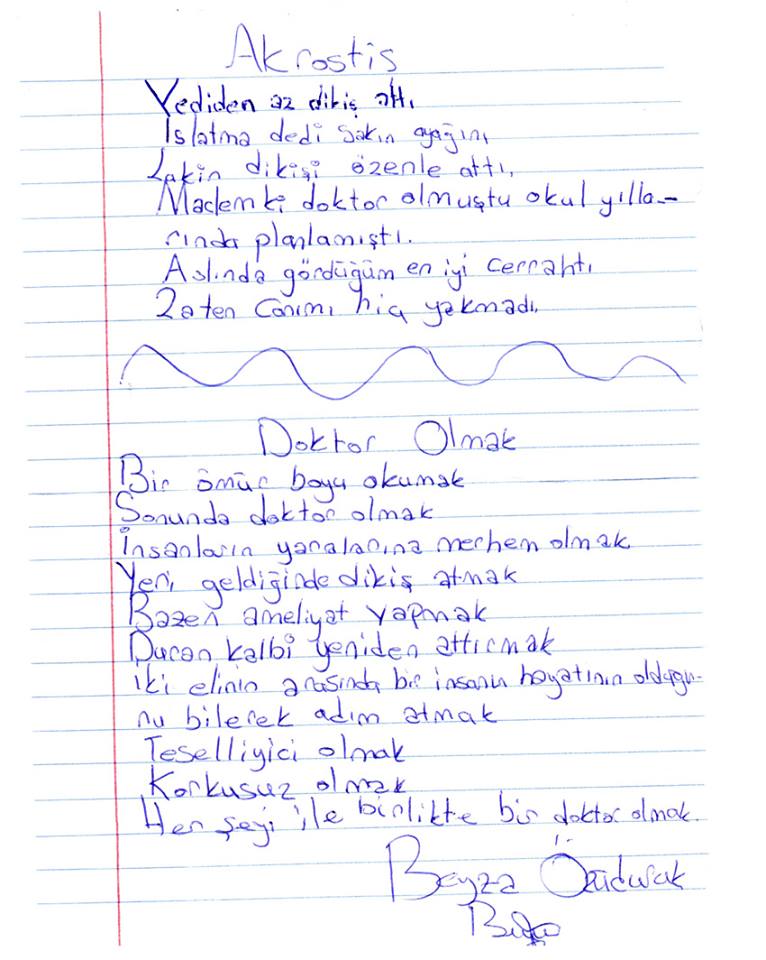 Akrostis
Yediden az dikiş attı
Islatma dedi sakın ayağını
Lakin dikişi özenle attı,
Mademki doktor olmuştu okul yılla-
rında planlamıştı.
Aslında gördüğüm en iyi cerrahtı
Zaten canımı hiç yakmadı,
Doktor Olmak
Bir ömür boyu okumak
Sonunda doktor olmak
İnsanların yaralarına merhem olmak
Yeri geldiğinde dikiş atmak
Bazen ameliyat yapmak
Duran kalbi yeniden attırmak
İki elinin arasında bir insanın hayatının olduğu-
nu bilerek adım atmak
Teselliyici olmak
Korkusuz olmak
Her şeyi ile birlikte bir doktor olmak.
Beyza